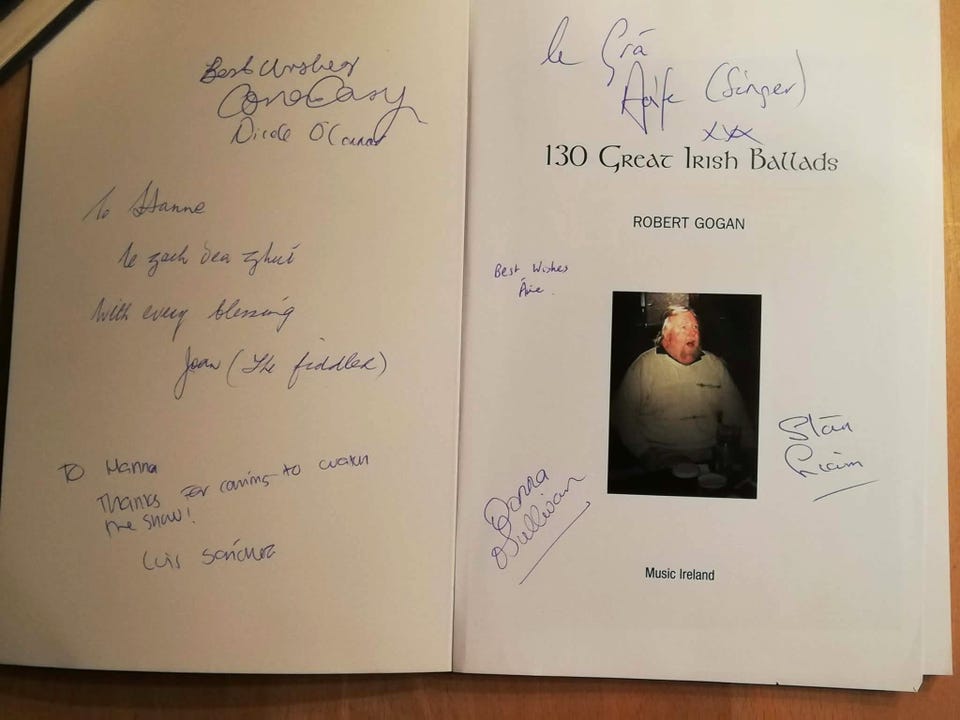 Best Wishes
Nicole O'Connor
To Hanne
le gach dea ghuí
With every blessing
Joan (The fiddler)
TO Hanna
Thanks for coming to watch
the show!
Luis Sánchez
le Grá
Aoife (Singer)
xxx
130 Great Irish Ballads
ROBERT GOGAN
Best Wishes
Áine
Donna
O'Sullivan
Music Ireland